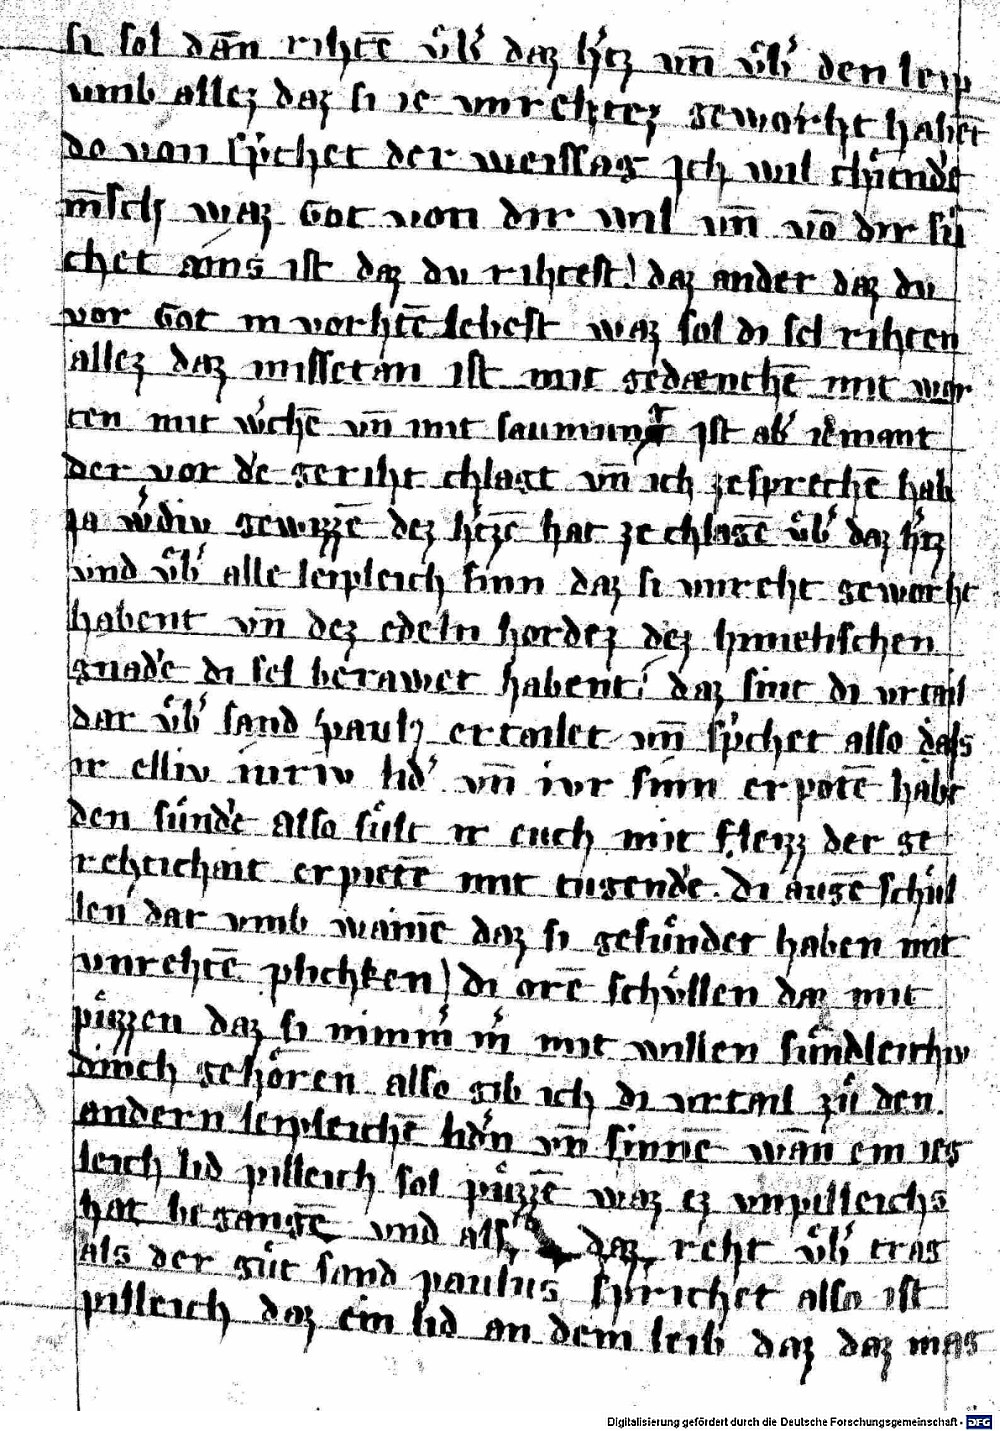 si sol dān rihtē v̊b̾ daz h̾tz vn̄ v̊b̾ den leip
vmb allez daz si ie vnrehtez geworht habēt
do von sp̾chet der weissag Jch wil chv̊nd̾e
m̄sch waz Got von dir wil vn̄ vō dir sů
chet ains ist daz du rihtest! daz ander daz du
vor Got in vorhtē lebest waz sol di sel rihten
allez daz missetan ist mit gedænchē mit wor
ten mit w̾chē vn̄ mit saumung ist ab̾ iemant
der vor d̾e geriht chlagt vn̄ ich zesprechē hab
ia w̾ div gewizzē dez h̾tzē hat ze chlagē v̊b̾ daz h̾tz
vnd v̊b̾ alle leipleich sinn daz si vnreht geworht
habent vn̄ dez edeln hordez dez himelischen
gnad̾e di sel berawet habent! daz sint di vrtail
dar v̊b̾ sand pauls ertailet vn̄ sp̾chet also dass
ir elliv iwriv lid̾ vn̄ ivr sinn erpotē habt
den sůnd̾e Also sůlt ir euch mit fleizz der ge
rehtichait erpietē mit tugend̾e. di augē schůl
len dar vmb wainē daz si gesůndet haben mit
vnrehtē plichken! di orē schůllen daz mit
půzzen daz si nimm̾ m̾ mit willen sůndleichiv
dinch gehören also gib ich di vrtail zů den
andern leipleichē lid̾n vn̄ sinnē wān ein ieg
leich lid pilleich sol půzzē waz ez vnpilleichs
hat begangē vnd als daz reht v̊b̾ trag
als der gůt sand paulus sprichet also ist
pilleich daz ein lid an dem leib daz daz mag
Digitalisierung gefördert durch die Deutsche Forschungsgemeinschaft - DFG